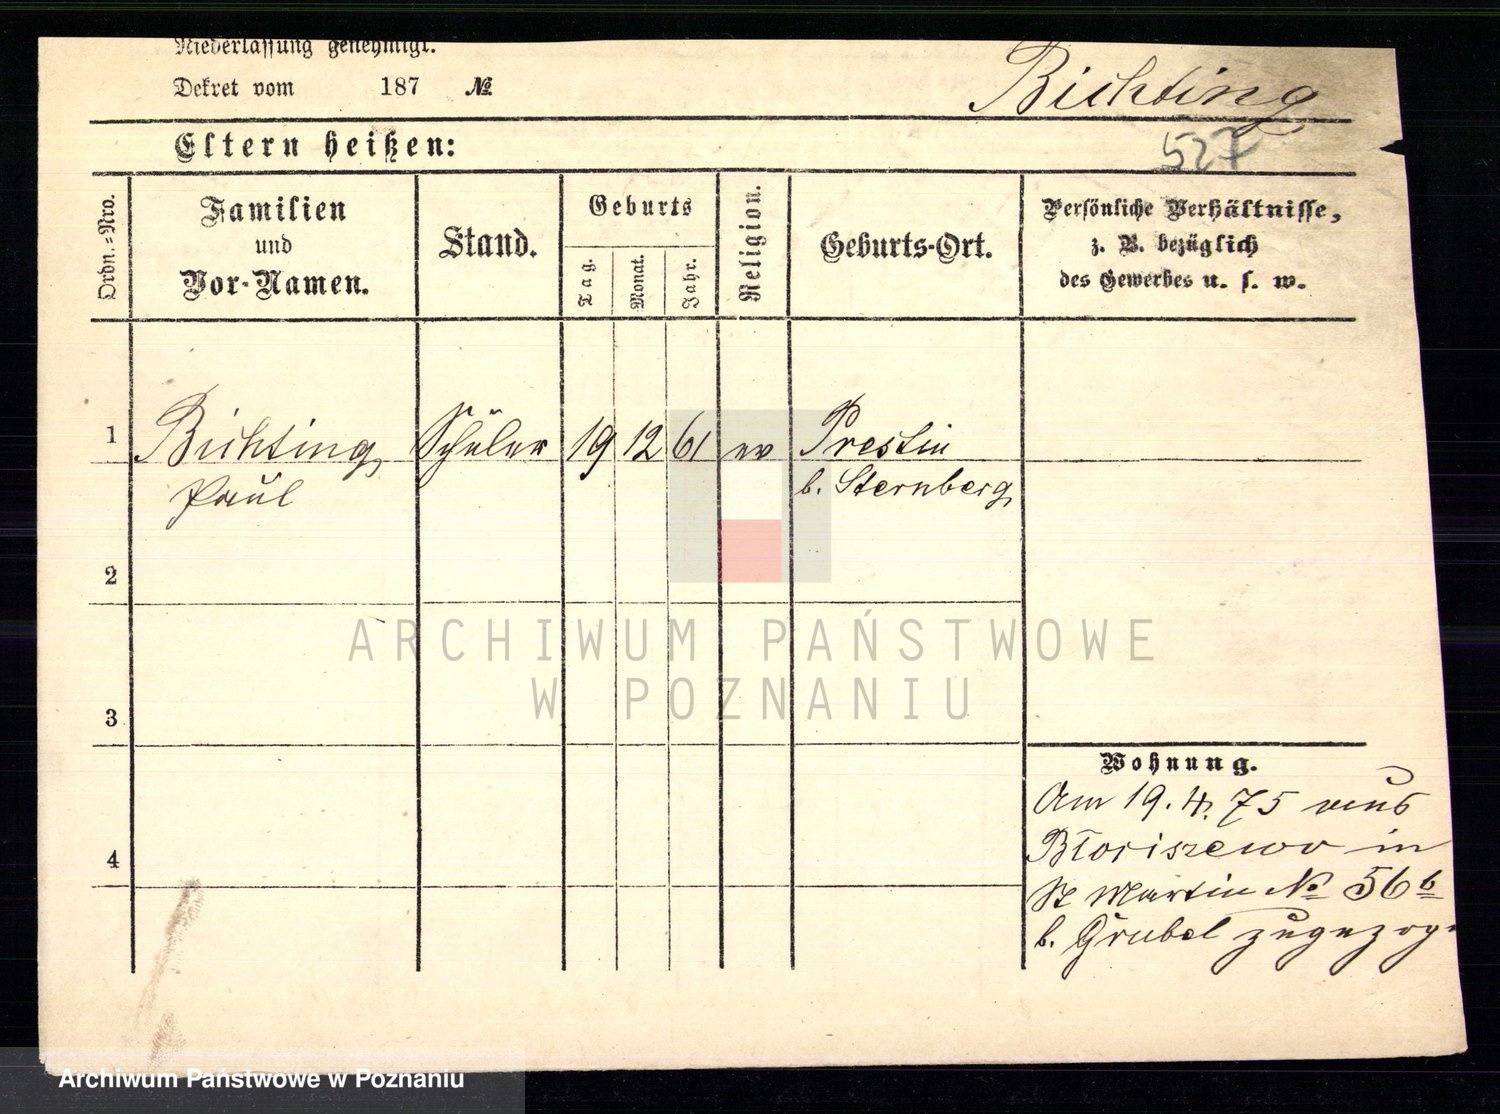 Niederlassung genehmigt.
Dekret vom 187 №
Bichting
527
Eltern heißen:
Ordn.-Nro.
Familien
und
Vor-Namen.
Stand.
Geburts
Tag.
Monat.
Jahr.
Religion.
Geburts-Ort.
Persönliche Verhältnisse,
z. B. bezüglich
des Gewerbes u. s. w.
1 Bichting Schüler 19 12 61 ev Prestin
Paul b. Sternberg
2
3
4
Wohnung.
Am 19.4.75 aus
in
St Martin № 56 b
b. Grubel
ARCHIWUM PAŃSTWOWE
W POZNANIU
Archiwum Państwowe w Poznaniu